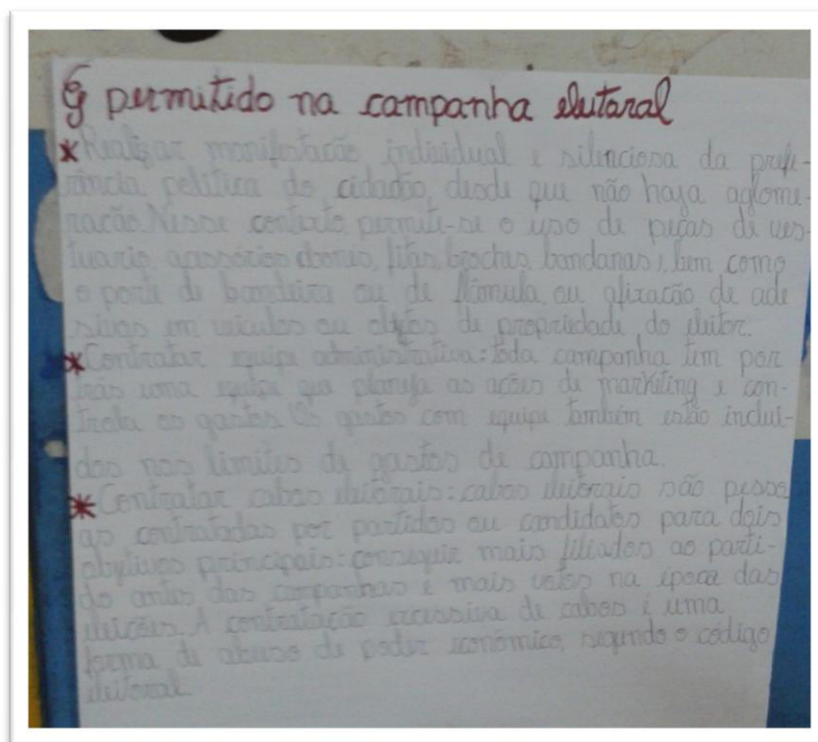 É permitido na campanha eleitoral
* Realizar manifestação individual e silenciosa da prefe-
rência política do cidadão, desde que não haja aglome-
ração. Nesse contexto, permite-se o uso de peças de ves-
tuário, acessórios como, fitas, broches, bandanas, bem como
o porte de bandeira ou de flâmula, ou afixação de ade
sivos em veículos ou objetos de propriedade do eleitor.
* Contratar equipe administrativa: toda campanha tem por
trás uma equipe que planeja as ações de marketing e con-
trola os gastos. Os gastos com equipe também estão incluí-
dos nos limites de gastos de campanha.
* Contratar cabos eleitorais: cabos eleitorais são pesso
as contratadas por partidos ou candidatos para dois
objetivos principais: conseguir mais filiados ao parti-
do antes das campanhas e mais votos na época das
eleições. A contratação excessiva de cabos é uma
forma de abuso de poder econômico, segundo o código
eleitoral.